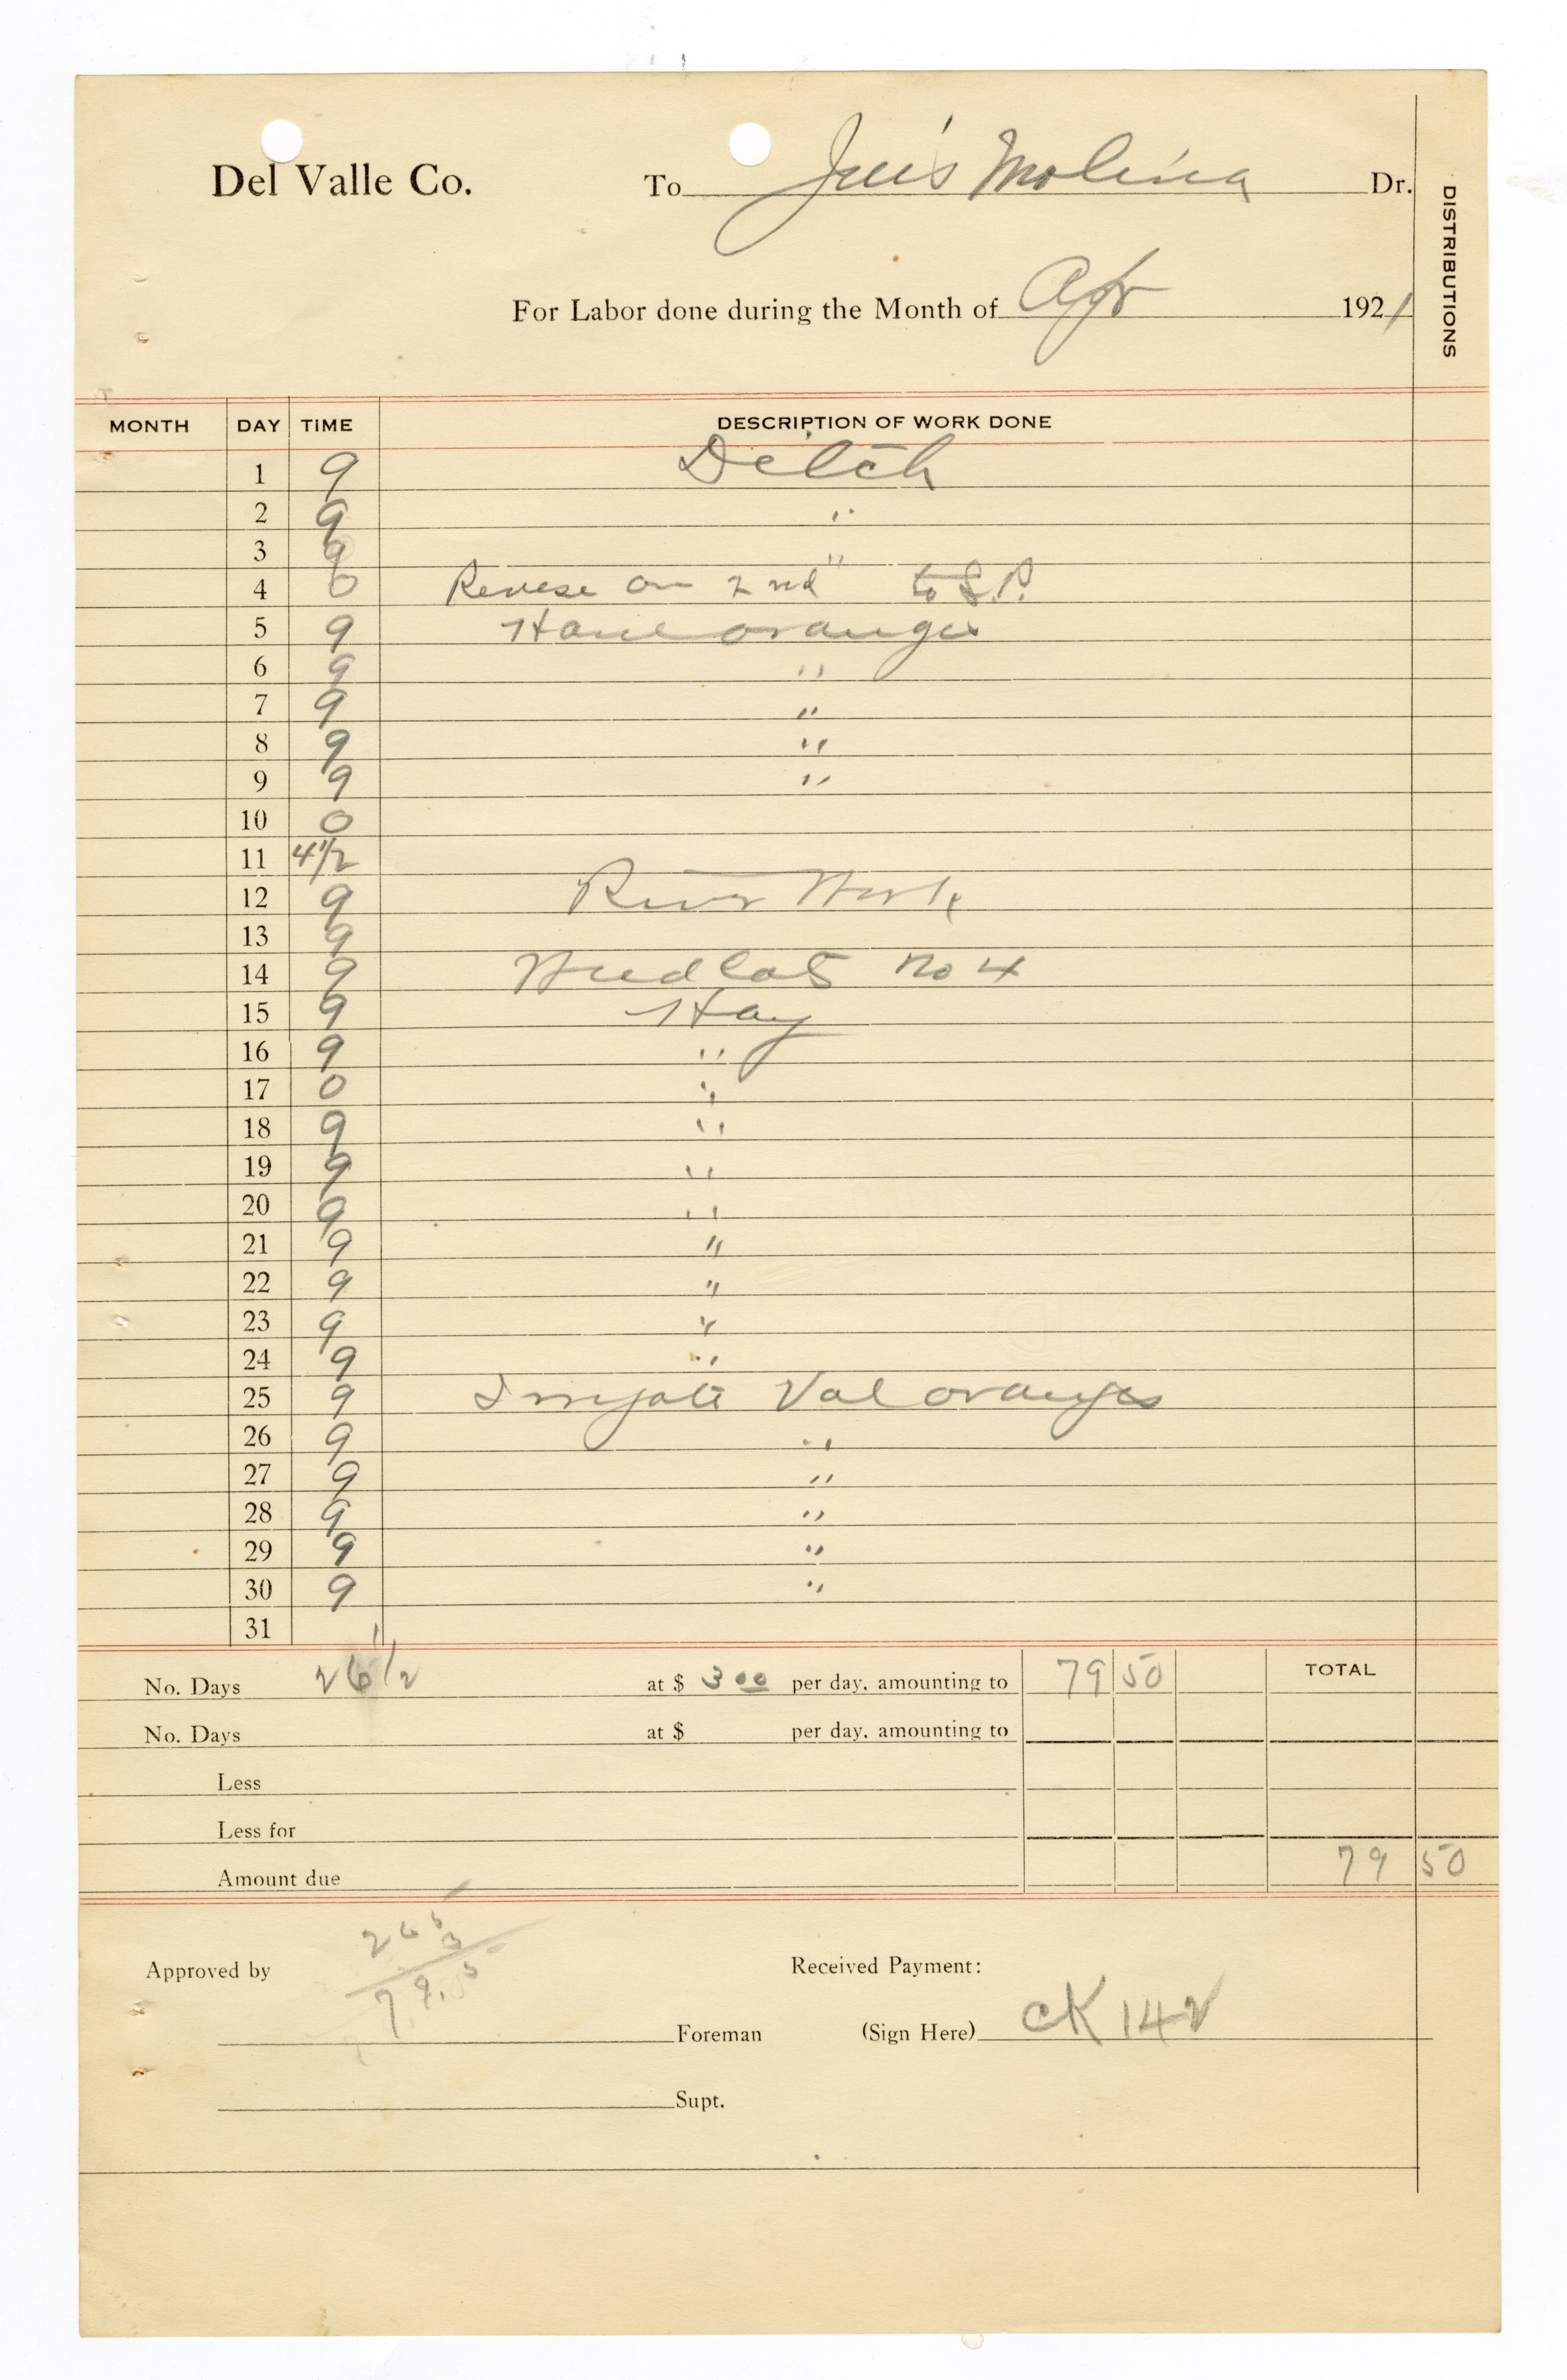 Del Valle Co. To Molina Dr.
DISTRIBUTIONS
For Labor done during the Month of Apr 1921
MONTH DAY TIME DESCRIPTION OF WORK DONE
1 9 Ditch
2 9 "
3 9 "
4 0 on 2nd to S.P.
5 9 Haul oranges
6 9 "
7 9 "
8 9 "
9 9 "
10 0
11 4 1/2
12 9 River Work
13 9
14 9 No 4
15 9 Hay
16 9 "
17 0 "
18 9 "
19 9 "
20 9 "
21 9 "
22 9 "
23 9 "
24 9 "
25 9 Irrigate Val oranges
26 9 "
27 9 "
28 9 "
29 9 "
30 9 "
31
No. Days 26 1/2 at $ 3 00 per day, amounting to 79 50 TOTAL
No. Days at $ per day, amounting to
Less
Less for
Amount due 79 50
26 5
3
Approved by Received Payment:
79.5
Foreman (Sign Here) CK 142
Supt.